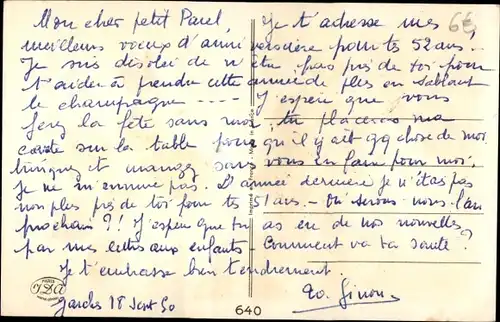 Mon cher petit Paul, Je t'adresse mes 6€
meilleurs voeux d'anniversaire pour tes 52 ans.
Je suis désolée de n'être pas près de toi pour
t'aider à prendre cette année de plus en sablant
le champagne ---- J'espère que vous
ferez la fête sans moi, tu placeras ma
carte sur la table pour qu'il y ait qq chose de moi
buvez et mangez sans vous en faire pour moi.
Je ne m'ennuie pas. L'année dernière je n'étais pas
non plus près de toi pour tes 51 ans - Où serons nous l'an
prochain ?! J'espère que tu as eu de nos nouvelles
par mes lettres aux enfants - Comment va ta santé ?
Je t'embrasse bien tendrement
Garches 18 Sept 50
640